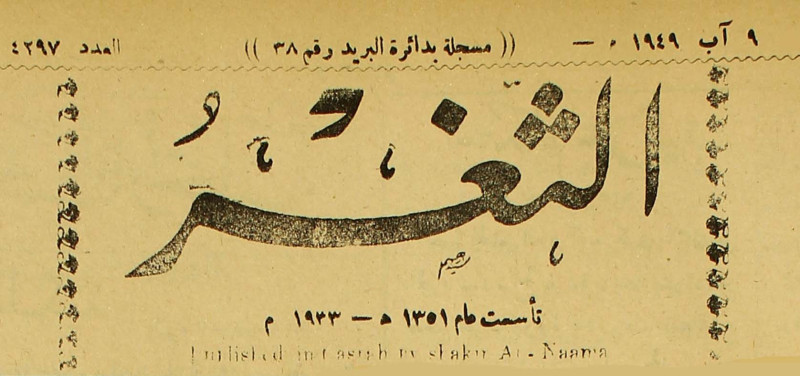 ٩ آب ١٩٤٩ م — (( مسجلة بدائرة البريد رقم ٣٨ )) العدد ٤٢٩٧
الثغر
تأسست عام ١٣٥١ هـ — ١٩٣٣ م
Published in Basrah by Shakir An-Naama